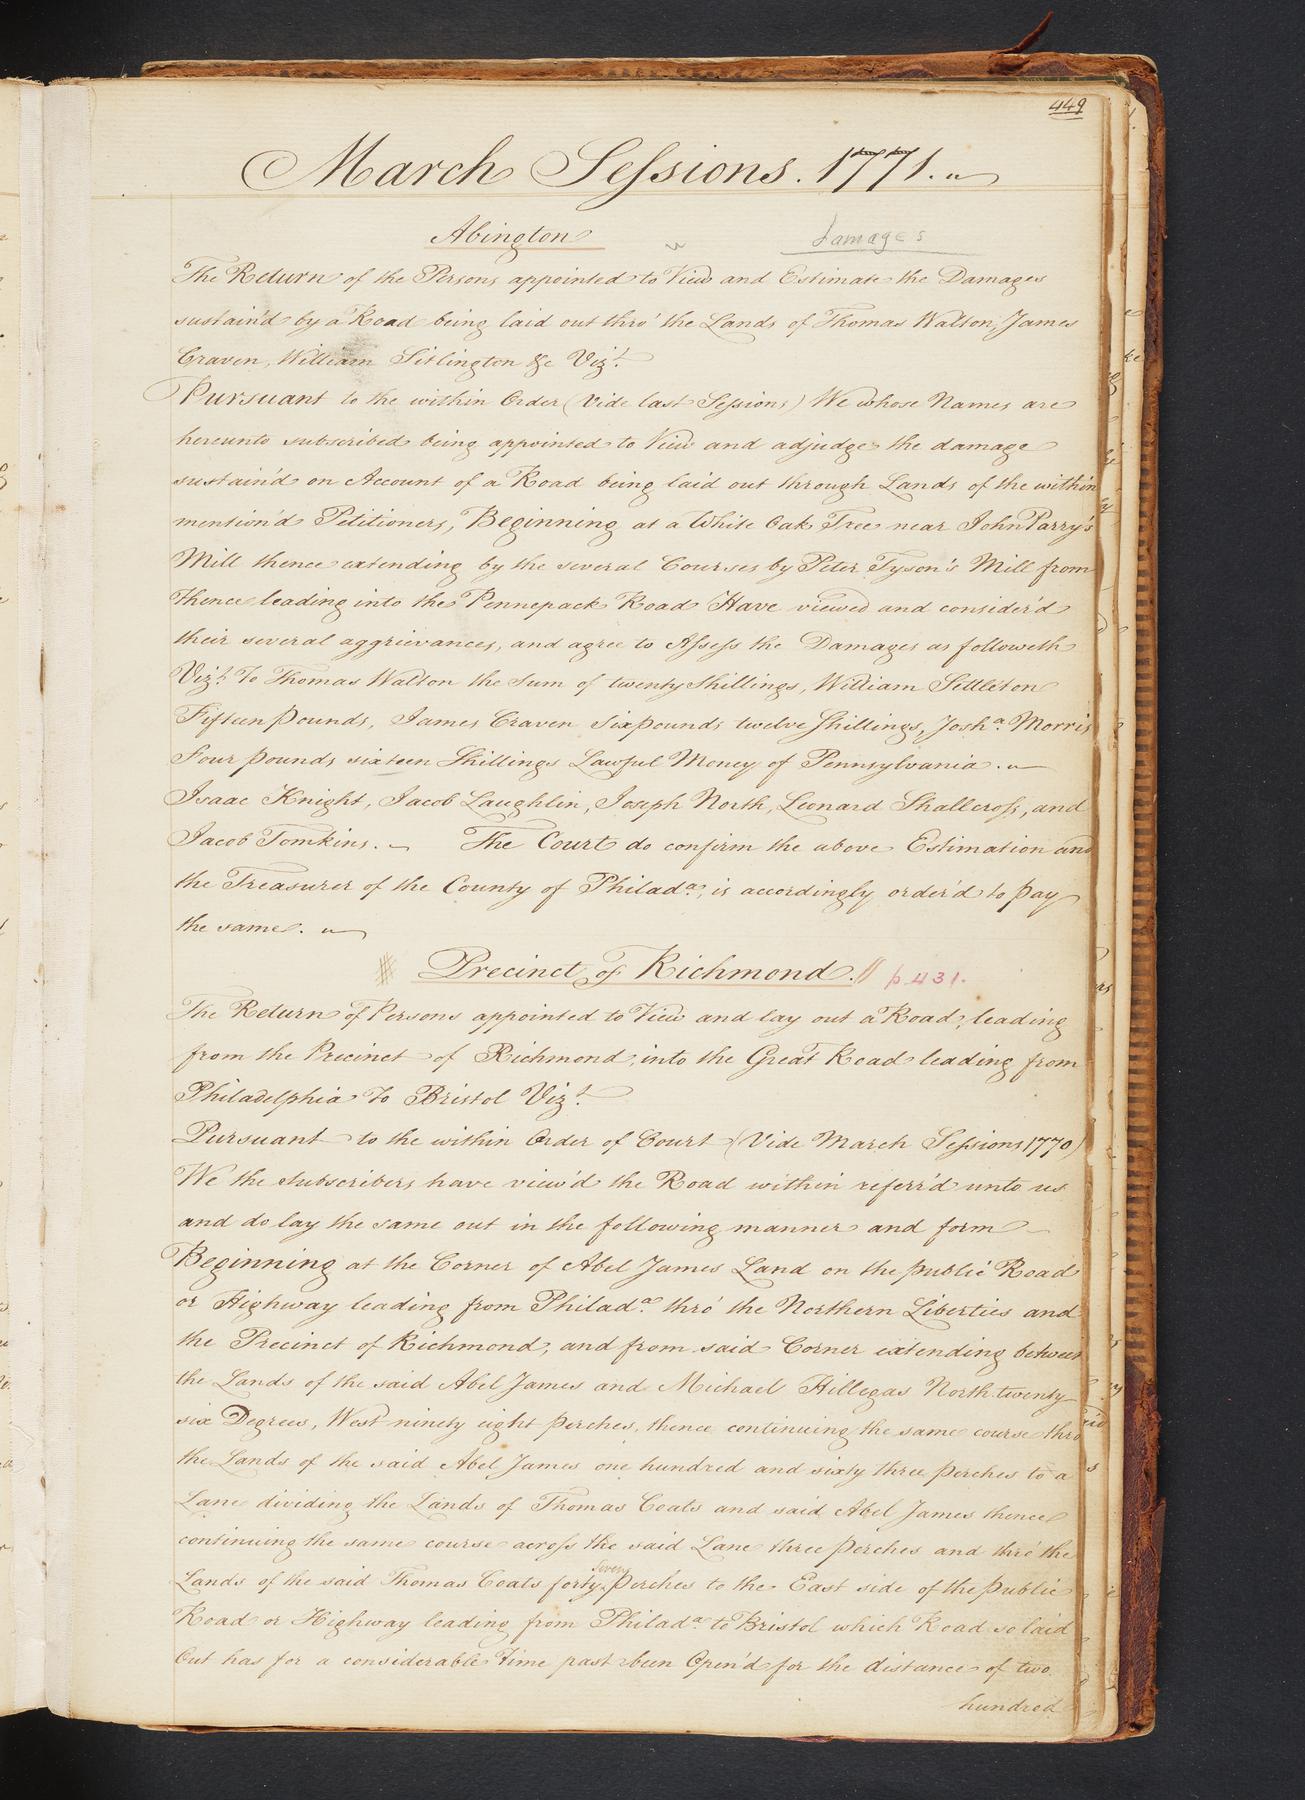 449
March Sessions. 1771.
Abington
damages
The Return of the Persons appointed to View and Estimate the Damages
sustain'd by a Road being laid out thro' the Lands of Thomas Walton, James
Craven, William Sitlington &c Vizt.
Pursuant to the within Order (Vide last Sessions) We whose Names are
hereunto subscribed being appointed to View and adjudge the damage
sustain'd on Account of a Road being laid out through Lands of the within
mention'd Petitioners, Beginning at a White Oak Tree near John Parry's
Mill thence extending by the several Courses by Peter Tyson's Mill from
thence leading into the Pennepack Road Have viewed and consider'd
their several aggrievances, and agree to Assess the Damages as followeth
Vizt. To Thomas Walton the Sum of twenty Shillings, William Settleton
Fifteen pounds, James Craven Six pounds twelve Shillings, Josha. Morris
Four pounds sixteen Shillings Lawful Money of Pennsylvania.
Isaac Knight, Jacob Laughlin, Joseph North, Leonard Shallcross, and
Jacob Tomkins. The Court do confirm the above Estimation and
the Treasurer of the County of Philada. is accordingly order'd to pay
the same.
Precinct of Richmond. // p. 431.
The Return of Persons appointed to View and lay out a Road, leading
from the Precinct of Richmond, into the Great Road leading from
Philadelphia To Bristol Vizt.
Pursuant to the within Order of Court (Vide March Sessions 1770)
We the Subscribers have view'd the Road within referr'd unto us
and do lay the same out in the following manner and form
Beginning at the Corner of Abel James Land on the public Road
or Highway leading from Philada. thro' the Northern Liberties and
the Precinct of Richmond, and from said Corner extending between
the Lands of the said Abel James and Michael Hillegas North twenty
six Degrees, West ninety eight perches, thence continuing the same course thro
the Lands of the said Abel James one hundred and sixty three perches to a
Lane dividing the Lands of Thomas Coats and said Abel James thence
continuing the same course across the said Lane three Perches and thro' the
Lands of the said Thomas Coats forty seven perches to the East side of the public
Road or Highway leading from Philada. to Bristol which Road so laid
Out has for a considerable Time past been Open'd for the distance of two
hundred